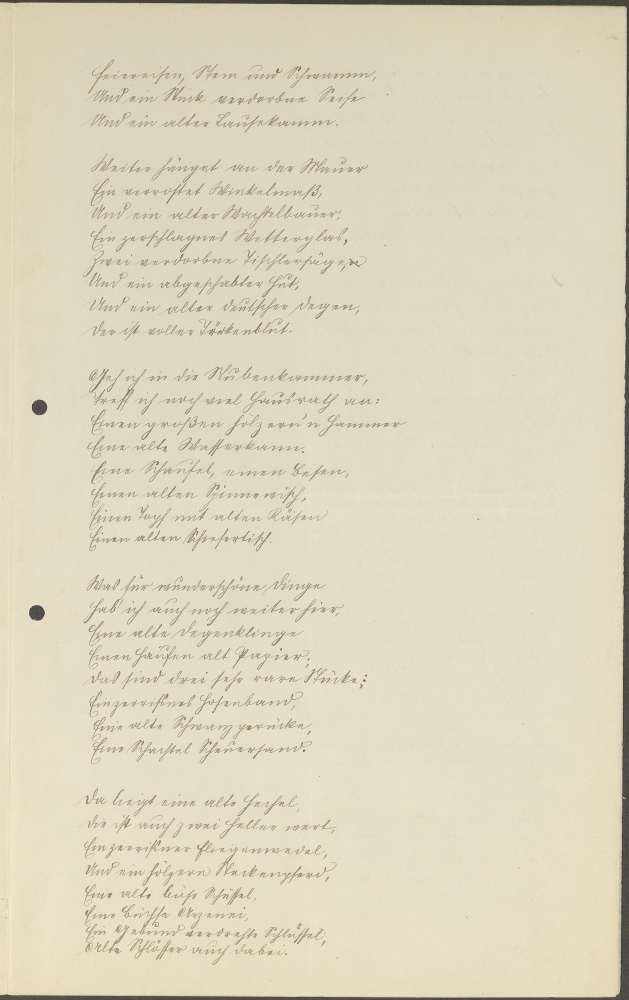 Feiereisen, Stein und Schwamm,
Und ein Stück verdorbne Seife
Und ein alter Lausekamm.
Weiter hänget an der Mauer
Ein verrostet Winkelmaß,
Und ein alter Wachtelbauer,
Ein zerschlagnes Wetterglas,
Zwei verdorbne Tischlersägen
Und ein abgeschabter Hut,
Und ein alter deutscher Degen,
Der ist voller Türkenblut.
Geh ich in die Stubenkammer,
Treff ich noch viel Hausrath an:
Einen großen hölzern'n Hammer
Eine alte Wasserkann.
Eine Schaufel, einen Besen,
Einen alten Spinnewisch,
Einen Topf mit alten Käsen
Einen alten Schiefertisch.
Was für wunderschöne Dinge
Hab ich auch noch weiter hier,
Eine alte Degenklinge
Einen Haufen alt Papier;
Das sind drei sehr rare Stücke:
Ein zerrissnes Hosenband,
Eine alte Schwanzperücke,
Eine Schachtel Scheuersand.
Da liegt eine alte Hechel,
Die ist auch zwei Heller wert,
Ein zerrissner Fliegenwedel,
Und ein hölzern Steckenpferd,
Eine alte Schüssel,
Eine Büchse Arzenei,
Ein Gebund verdrehte Schlüssel,
Alte Schlösser auch dabei.